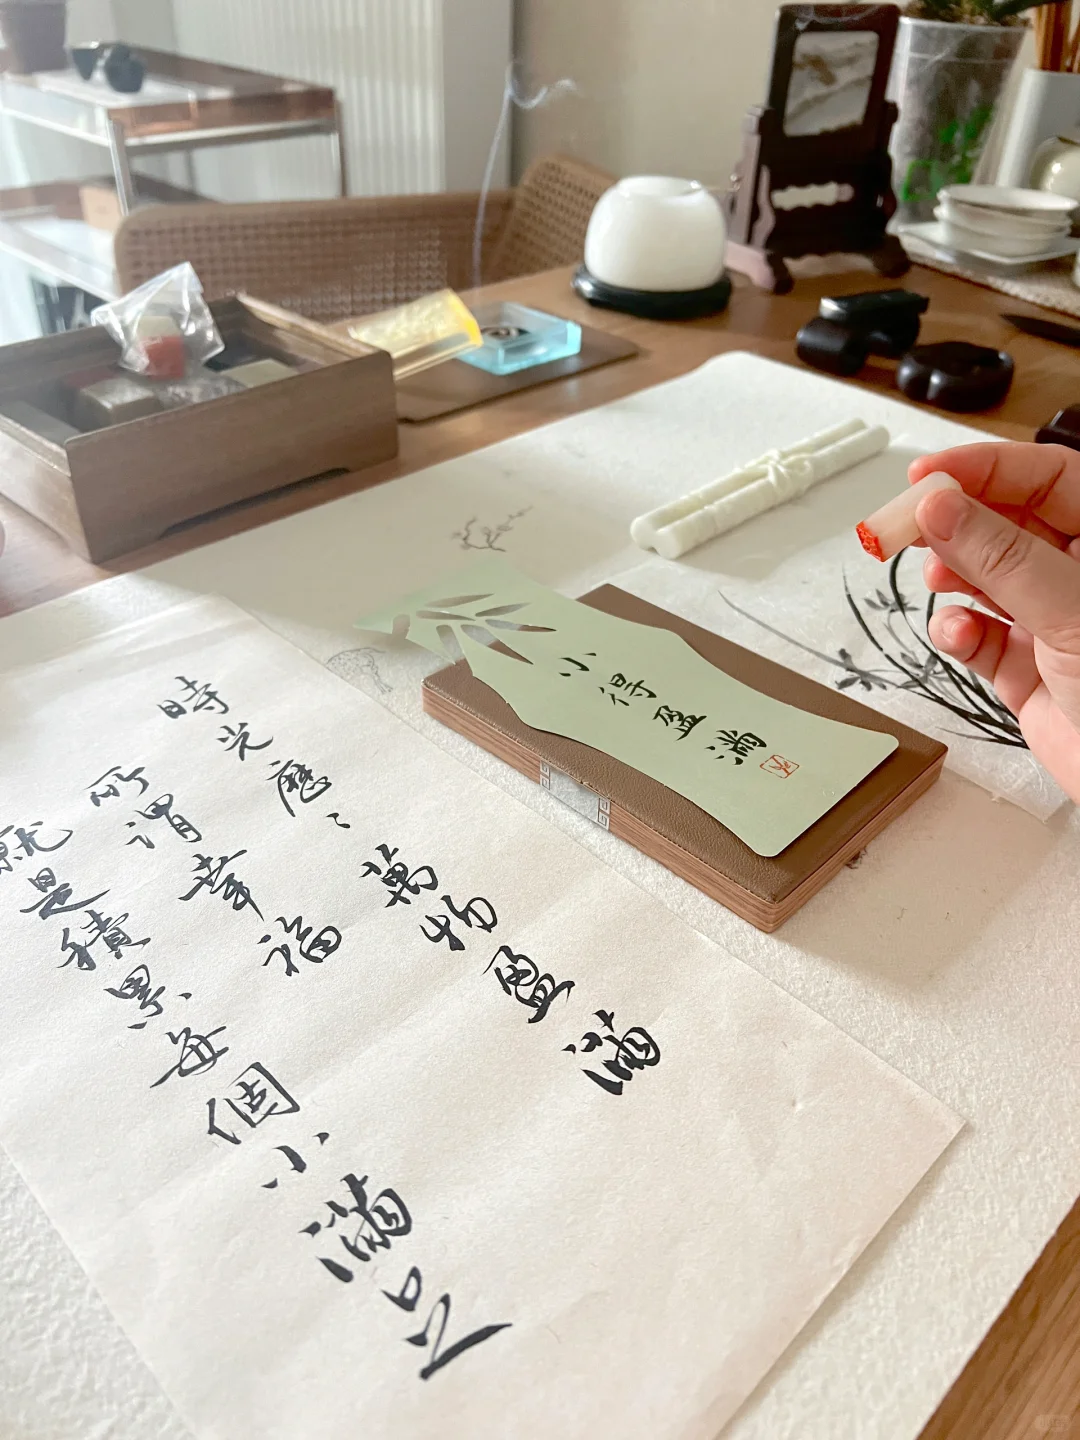 時光歷〻萬物盈滿
所謂幸福
就是積累每個小滿足
小得盈滿